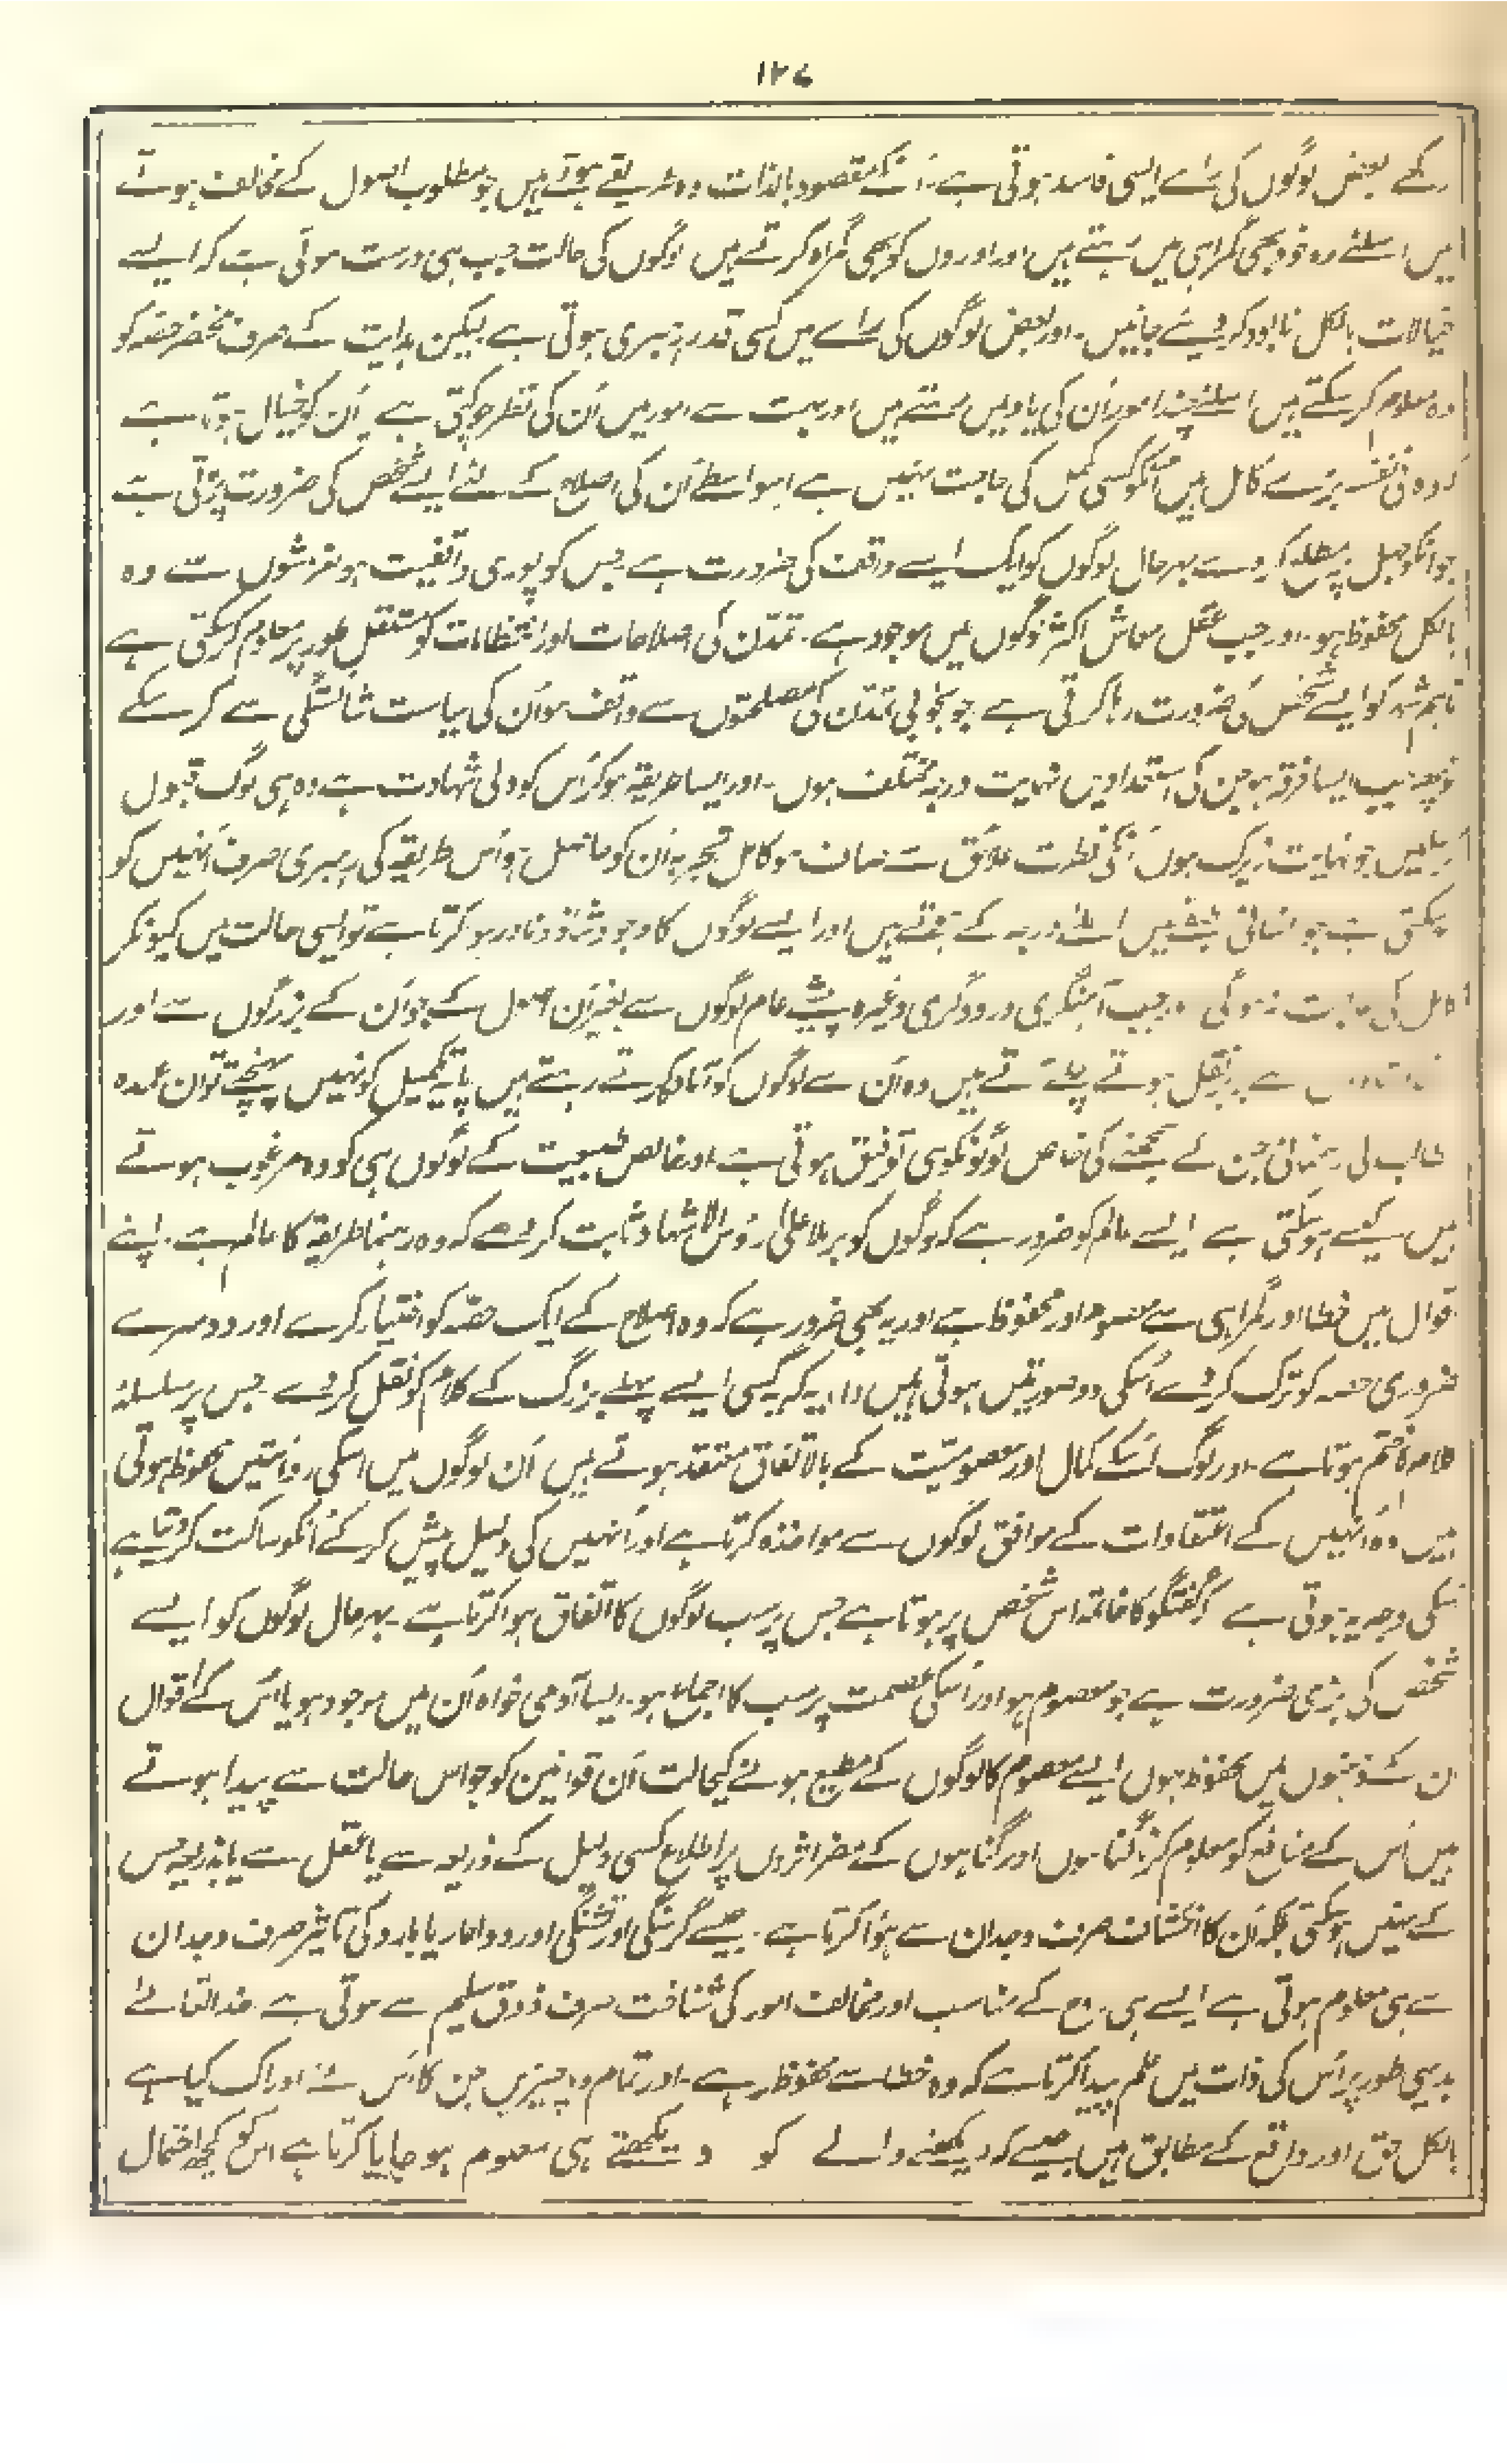 ۱۲۷
رکھے بعض لوگوں کی رائے ایسی فاسد ہوتی ہے۔ اُنکے مقصود بالذات وہ طریقے ہوتے ہیں جو مطلوب اصول کے مخالف ہوتے
ہیں اسلئے وہ خود بھی گمراہی میں رہتے ہیں اور اوروں کو بھی گمراہ کرتے ہیں لوگوں کی حالت جب ہی درست ہوتی ہے کہ ایسے
خیالات بالکل نابود کر دیئے جائیں۔ اور بعض لوگوں کی رائے میں کسی قدر رہبری ہوتی ہے لیکن ہدایت کے صرف مختصر حصہ کو
وہ معلوم کر سکتے ہیں اسلئے چند امور اُن کی یاد میں رہتے ہیں اور بہت سے امور میں اُن کی نظر چوکتی ہے اُن کو خیال ہوتا ہے
کہ وہ فی نفسہ بڑے کامل ہیں اُنکو کسی مکمل کی حاجت نہیں ہے اسواسطے اُن کی اصلاح کے لئے ایسے شخص کی ضرورت پڑتی ہے
جو انکو جہل پر مطلع کر دے بہرحال لوگوں کو ایک ایسے واقف کی ضرورت ہے جس کو پوری واقفیت ہو لغزشوں سے وہ
بالکل محفوظ ہو۔ اور جب عقل معاش اکثر لوگوں میں موجود ہے۔ تمدن کی اصلاحات اور انتظامات کو مستقل طور پر معلوم کر سکتی ہے
تاہم شہر کو ایسے شخص کی ضرورت رہا کرتی ہے جو بخوبی تمدن کی مصلحتوں سے واقف ہو اُن کی سیاست شائستگی سے کر سکے
تو پھر جب ایسا فرقہ ہو جن کی استعدادیں نہایت درجہ مختلف ہوں۔ اور ایسا طریقہ ہو کہ اُس کو دلی شہادت سے وہ ہی لوگ قبول
کر سکیں جو نہایت زیرک ہوں اُنکی فطرت علائق سے صاف ہو کامل تجربہ اُن کو حاصل ہو اُس طریقہ کی رہبری صرف اُنہیں کو
ہو سکتی ہے جو انسانی طبقہ میں اعلیٰ درجہ کے ہوتے ہیں اور ایسے لوگوں کا وجود شاذ و نادر ہوا کرتا ہے تو ایسی حالت میں کیونکر
کامل کی حاجت نہ ہوگی۔ جب آہنگری درودگری وغیرہ پیشے عام لوگوں سے بغیر اُن اصول کے جو اُن کے بزرگوں سے اور
استادوں سے برابر نقل ہوتے چلے آتے ہیں وہ اُن سے لوگوں کو آمادہ کرتے رہتے ہیں پایہ تکمیل کو نہیں پہنچتے تو ان عمدہ
مطالب کی رہنمائی جن کے سمجھنے کی خاص لوگوں کو ہی توفیق ہوتی ہے اور خالص طبیعت کے لوگوں ہی کو وہ مرغوب ہوتے
ہیں کیسے ہو سکتی ہے ایسے عالم کو ضرور ہے کہ لوگوں کو برملا علیٰ رؤس الاشہاد ثابت کر دے کہ وہ رہنما طریقہ کا عالم ہے۔ اپنے
اقوال میں خطا اور گمراہی سے معصوم اور محفوظ ہے اور یہ بھی ضرور ہے کہ وہ اصلاح کے ایک حصہ کو اختیار کرے اور دوسرے
ضروری حصہ کو ترک کر دے اُسکی دو صورتیں ہوتی ہیں (۱) یہ کہ کسی ایسے پہلے بزرگ کے کلام کو نقل کر دے جس پر سلسلۂ
کلام کا ختم ہوتا ہے۔ اور لوگ اُسکے کمال اور معصومیت کے بالاتفاق معتقد ہوتے ہیں اُن لوگوں میں اسکی روایتیں محفوظ ہوتی
ہیں وہ اُنہیں کے اعتقادات کے موافق لوگوں سے مواخذہ کرتا ہے اور اُنہیں کی دلیل پیش کر کے انکو ساکت کر دیتا ہے
اسکی وجہ یہ ہوتی ہے کہ گفتگو کا خاتمہ اس شخص پر ہوتا ہے جس پر سب لوگوں کا اتفاق ہوا کرتا ہے۔ بہرحال لوگوں کو ایسے
شخص کی بڑی ضرورت ہے جو معصوم ہو اور اُسکی عصمت پر سب کا اجماع ہو۔ ایسا آدمی خواہ اُن میں موجود ہو یا اُس کے اقوال
ان کے ذہنوں میں محفوظ ہوں ایسے معصوم کا لوگوں کے مطیع ہونے کی حالت اُن قوانین کو جو اس حالت سے پیدا ہوتے
ہیں اُس کے منافع کو معلوم کرنا گناہوں اور گناہوں کے مضر اثروں پر اطلاع کسی دلیل کے ذریعہ سے یا عقل سے یا بذریعہ حس
کے نہیں ہو سکتی بلکہ اُن کا انکشاف صرف وجدان سے ہوا کرتا ہے۔ جیسے گرسنگی اور تشنگی اور دوا حار یا بارد کی تاثیر صرف وجدان
سے ہی معلوم ہوتی ہے ایسے ہی روح کے مناسب اور مخالف امور کی شناخت صرف ذوق سلیم سے ہوتی ہے خدا تعالےٰ
بدیہی طور پر اُس کی ذات میں علم پیدا کرتا ہے کہ وہ خطا سے محفوظ رہے۔ اور تمام وہ چیزیں جن کا اُس نے ادراک کیا ہے
بالکل حق اور واقع کے مطابق ہیں جیسے کہ دیکھنے والے کو دیکھتے ہی معلوم ہو جایا کرتا ہے اس کو کچھ احتمال